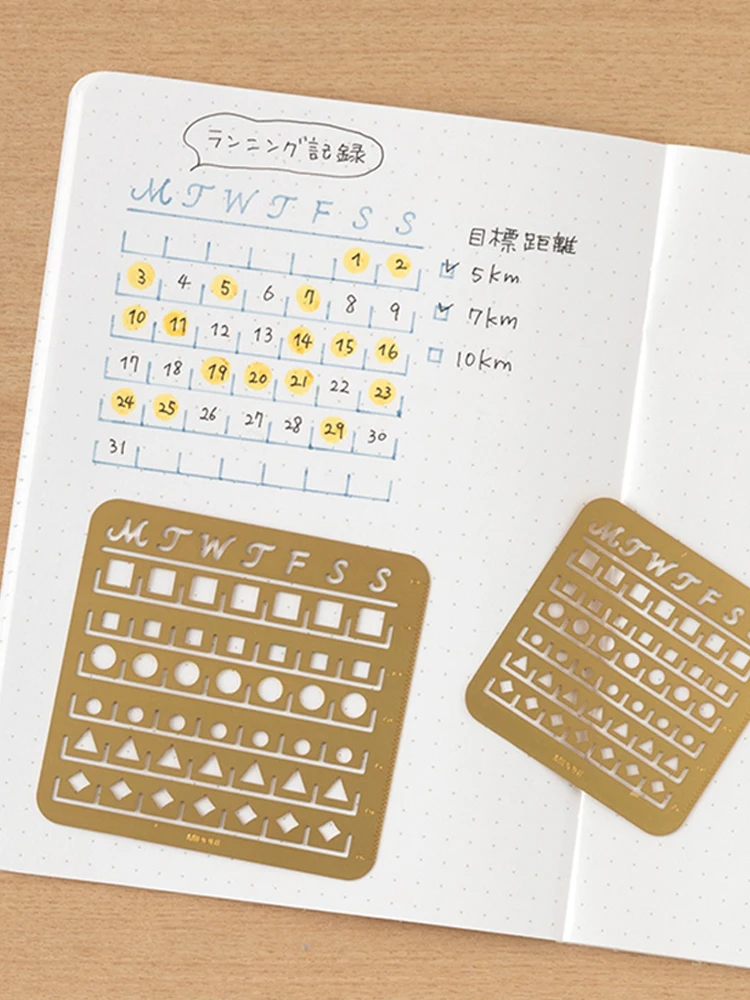 ランニング記録
M T W T F S S
1 2
3 4 5 6 7 8 9
10 11 12 13 14 15 16
17 18 19 20 21 22 23
24 25 26 27 28 29 30
31
目標距離
5km
7km
10km
M T W T F S S
M T W T F S S